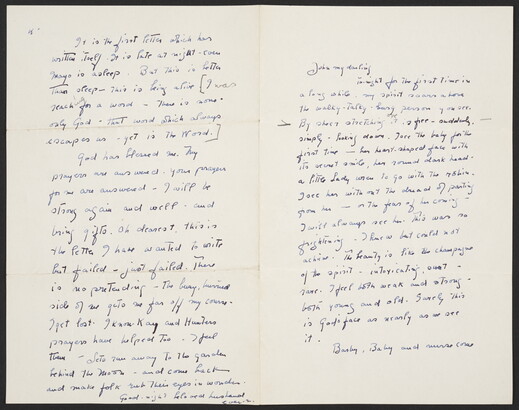 It is the first letter which has
written itself. It is late at night - even
Mayo is asleep. But this is better
than sleep - this is being alive [I was
reach for a word - there is none -
only God - that word which always
escapes us - yet is the Word.]
God has blessed me. My
prayers are answered - your prayers
for me are answered - I will be
strong again and well - and
bring gifts. Oh dearest, this is
the letter I have wanted to write
but failed - just failed. There
is no pretending - the busy, hurried
side of me gets me far off my course.
I get lost. I know Kay and Hunters
prayers have helped too. I feel
them - Lets run away to the garden
behind the Moon - and come back
and make folk rub their eyes in wonder.
Good-night beloved husband
John my darling
tonight for the first time in
a long while my spirit soars above
the walky-talky busy person you see.
By sheer stretching it is free - suddenly,
simply - looking down. I see the baby for the
first time - her heart-shaped face with
its secret smile, her round dark head -
a little Lady wren to go with the robin.
I see her with out the dread of parting
from her - or the fear of her coming -
I will always see her. This was so
frightening - I knew but could not
achieve. The beauty is like the champagne
of the spirit - intoxicating,
rare. I feel both weak and strong -
both young and old. Surely this
is God's face as nearly as we see
it.
Barby, Baby and nurse come